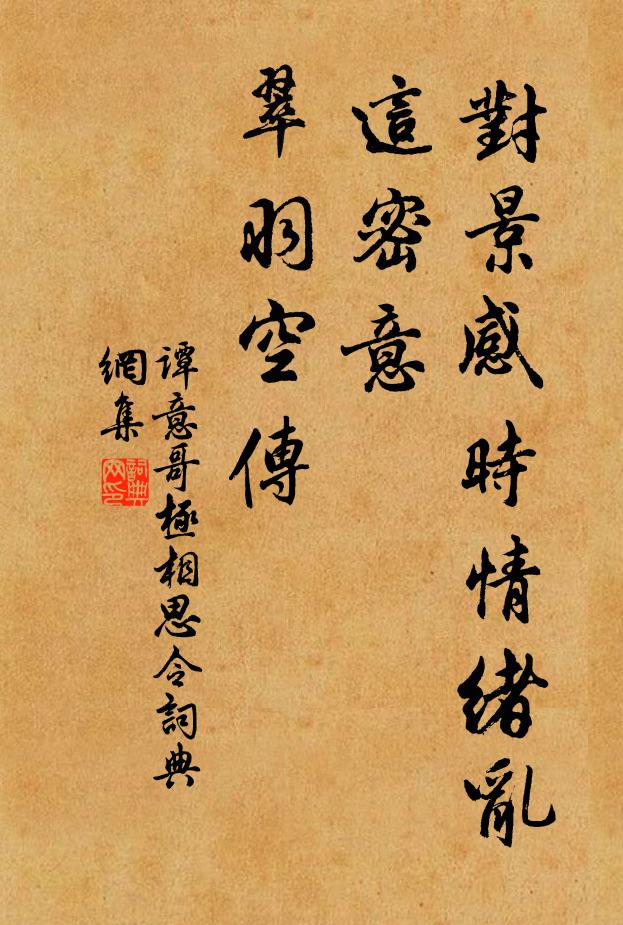 對景感時情緒亂
這密意
翠羽空傳
譚意哥極相思令詞典
網集
詞典網印